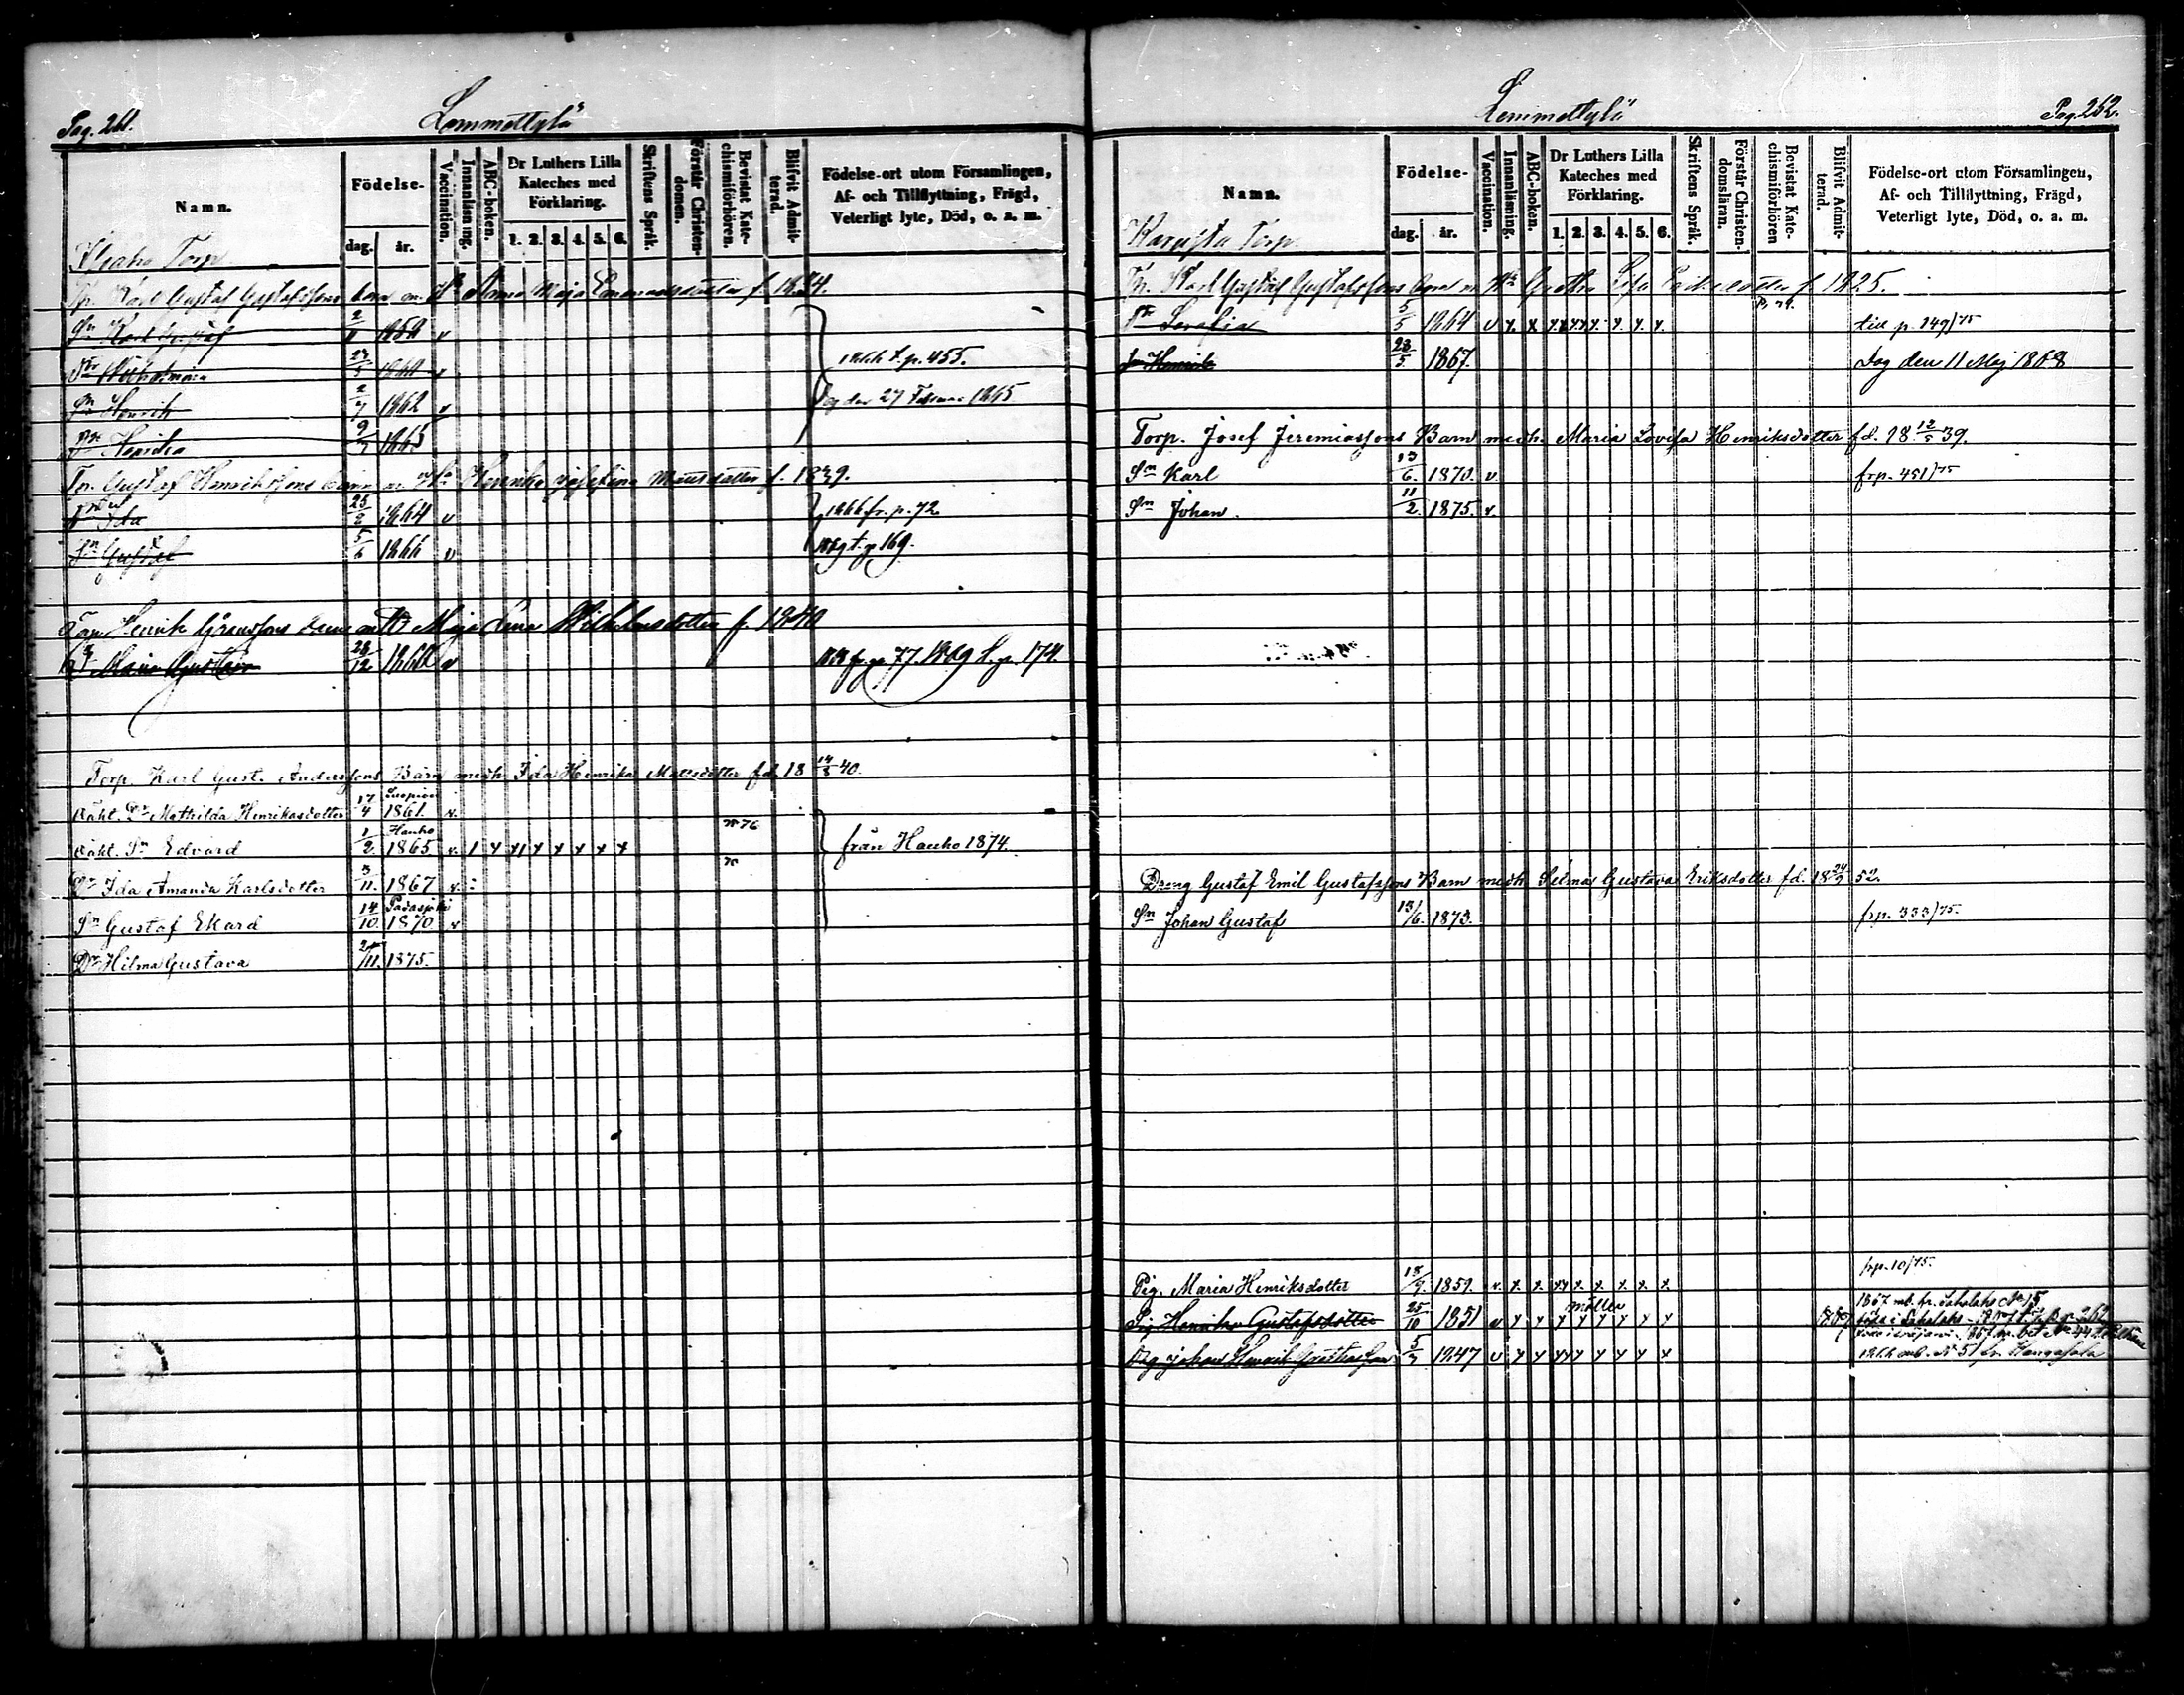 Pag. 261.
Lemmettylä
Namn.
Födelse-
dag.
år.
Vaccination.
Innanläsning.
ABC-boken.
Dr Luthers Lilla Kateches med Förklaring.
1. 2. 3. 4. 5. 6.
Skriftens Språk.
Förstår Christen-domen.
Bevistat Kate-chismiförhören.
Blifvit Admit-terad.
Födelse-ort utom Församlingen, Af- och Tillflyttning, Frägd, Veterligt lyte, Död, o. a. m.
Torp
Tp. Karl Gustaf Gustafssons barn m. Hu Anna Maja f. 1834.
Sn Karl Gustaf 2/11 1859 v
Dr Wilhelmina 1860 v 1866 t. p. 455.
Sn Henrik 2/7 1862 v Dog den 27 Februari 1865
Dr Henrika 9/7 1865
Tp. Gustaf Henrikssons barn m. Hu Henrika Josefina f. 1839.
Ida 25/8 1864 v 1866 fr. p. 72.
Sn Gustaf 5/6 1866 v t. p 169.
Torp Henrik Göranssons barn m Maja Lena Wilhelmsdotter f. 1840
Maria Gustava 28/12 1860 v fr. p 77. 1869 t. p. 174.
Torp. Karl Gust. Anderssons Barn med h. Ida Henrika Mattsdotter fd. 18 14/3 40.
oäkt. Dr Mathilda Henrikasdotter 17/4 Luopiois 1861. v.
oäkt. Sn Edvard 1/2 Hauho 1865 v. 1 x x1 x x x x x från Hauho 1874.
Dr Ida Amanda Karlsdotter 3/11. 1867 v.
Sn Gustaf Ekard 14/10. Padasjoki 1870 v
Dr Hilma Gustava 2/11. 1875.
Lemmettylä
Pag. 262.
Namn.
Födelse-
dag.
år.
Vaccination.
Innanläsning.
ABC-boken.
Dr Luthers Lilla Kateches med Förklaring.
1. 2. 3. 4. 5. 6.
Skriftens Språk.
Förstår Christen-domsläran.
Bevistat Kate-chismiförhören
Blifvit Admit-terad.
Födelse-ort utom Församlingen, Af- och Tillflyttning, Frägd, Veterligt lyte, Död, o. a. m.
Torp
Tp. Karl Gustaf Gustafssons barn m Hu Gretha f. 1825.
Dr Serafia 5/5 1864 v x. x x x x x x. x. x. till p. 149/75
Sn Henrik 28/5. 1867. Dog den 11 Maj 1868
Torp. Josef Jeremiassons Barn med h. Maria Lovisa Henriksdotter fd. 18 12/5 39.
Sn Karl 13/6. 1870. v. frp. 451/75
Sn Johan. 11/2. 1875. v.
Dreng Gustaf Emil Gustafssons Barn med h. Selma Gustava Eriksdotter fd. 18 24/9 52.
Sn Johan Gustaf 13/6. 1873. frp. 333/75.
frp. 10/75.
Pig. Maria Henriksdotter 18/9. 1859. v. x. x. xx x. x. x. x. x.
Pig Henrika Gustafsdotter 25/10 1851 v x x x x x x x x
Dg. Johan Henrik 5/7 1847 v x x x x x x x x x 1866 mb. N 51 fr. Kangasala